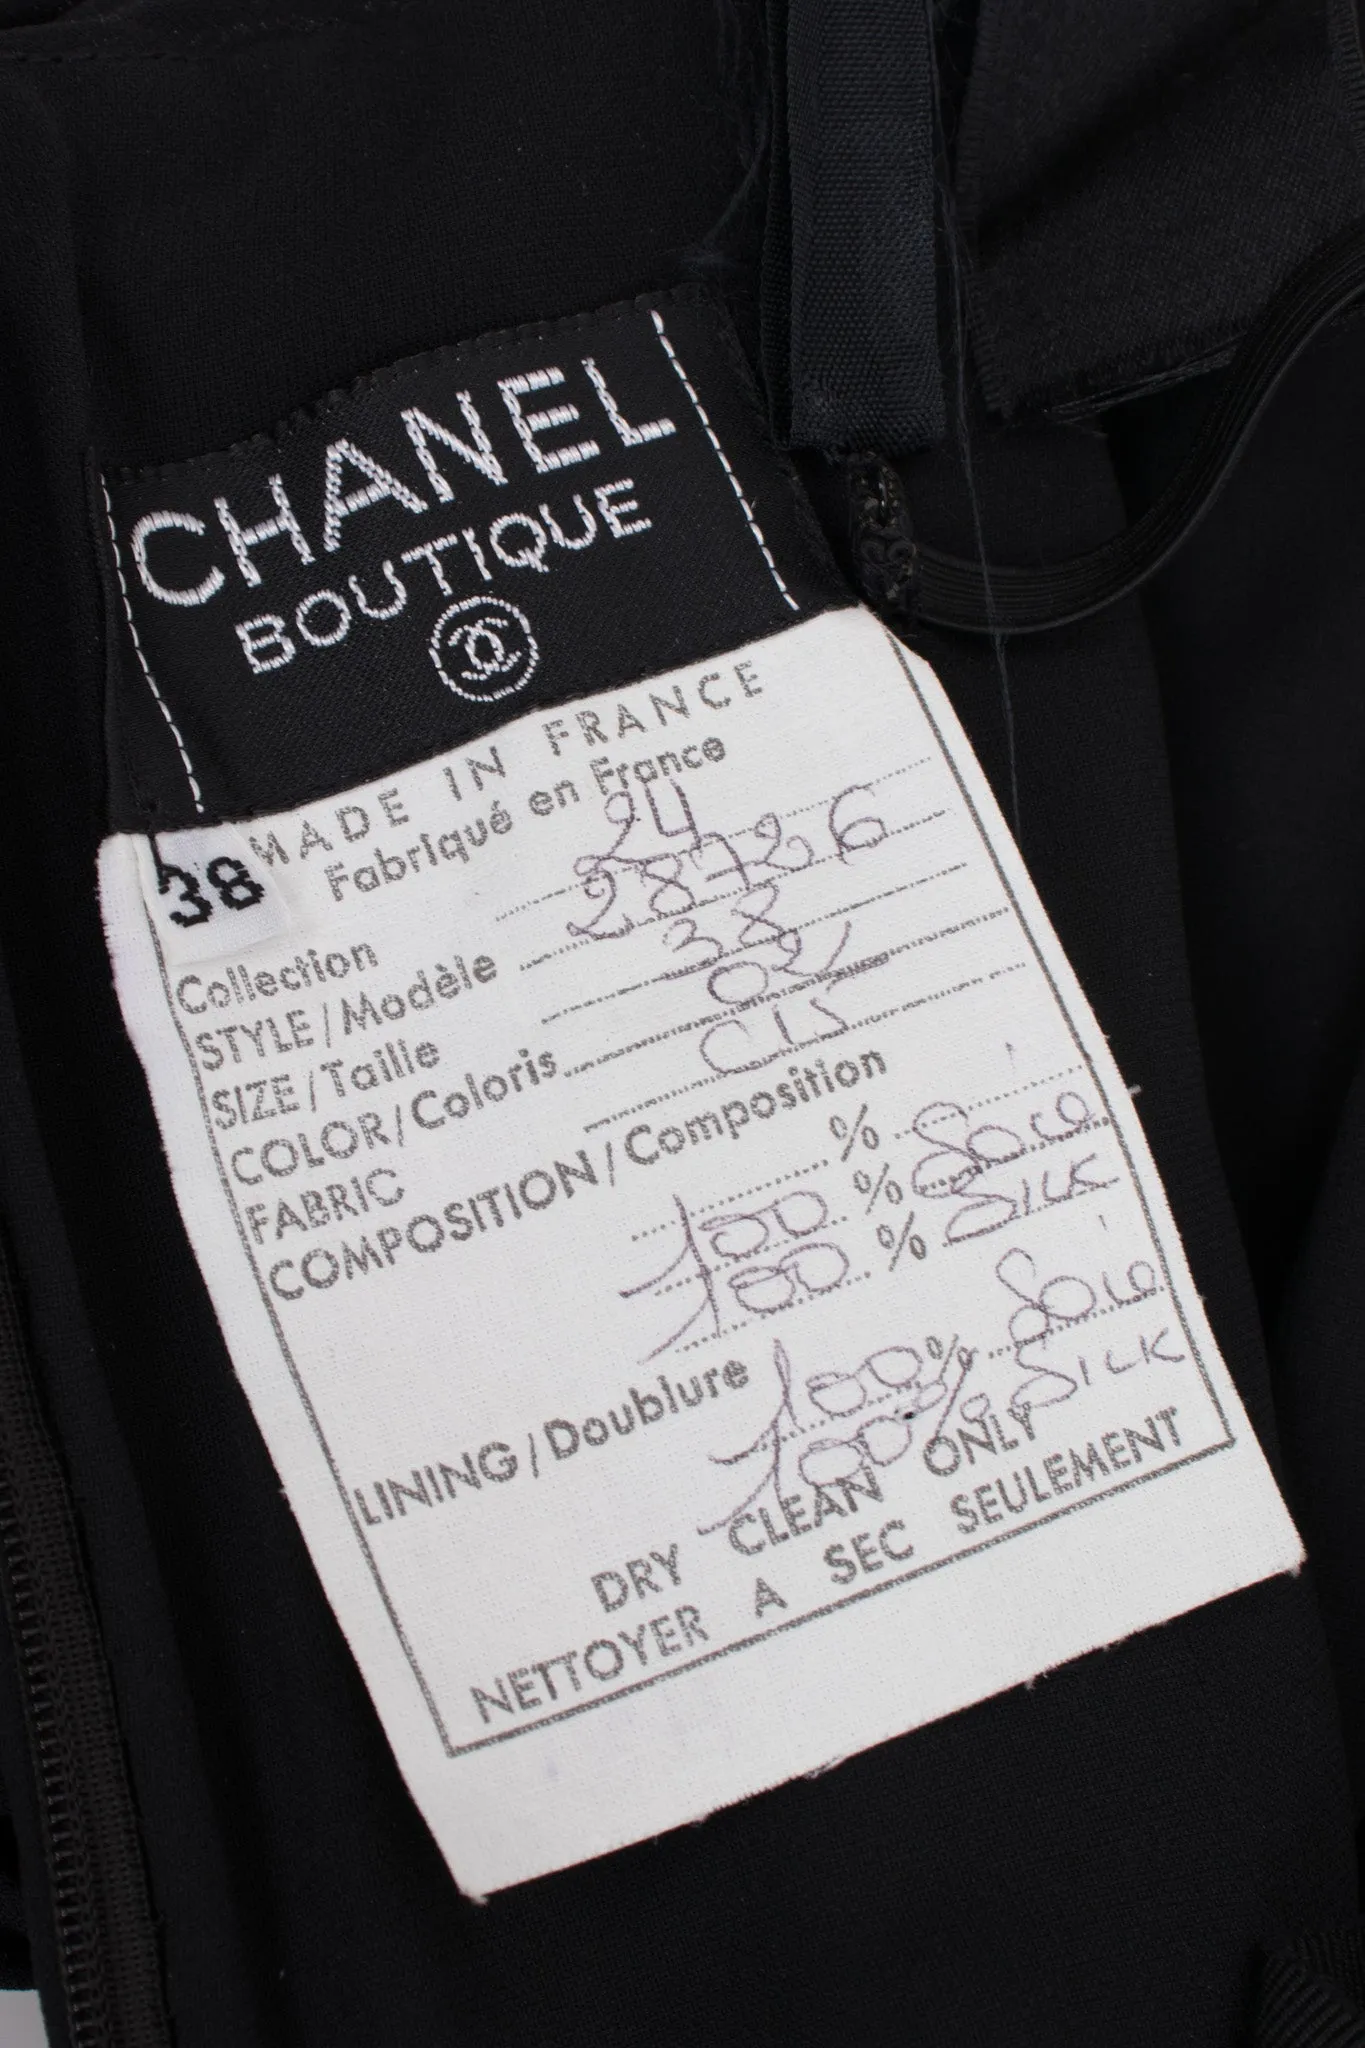 CHANEL
BOUTIQUE
MADE IN FRANCE
Fabriqué en France
38
Collection 24
STYLE/Modèle 28726
SIZE/Taille 38
COLOR/Coloris
FABRIC
COMPOSITION/Composition
%
100 % Soie
100 % SILK
LINING/Doublure 100% Soie
100% SILK
DRY CLEAN ONLY
NETTOYER A SEC SEULEMENT